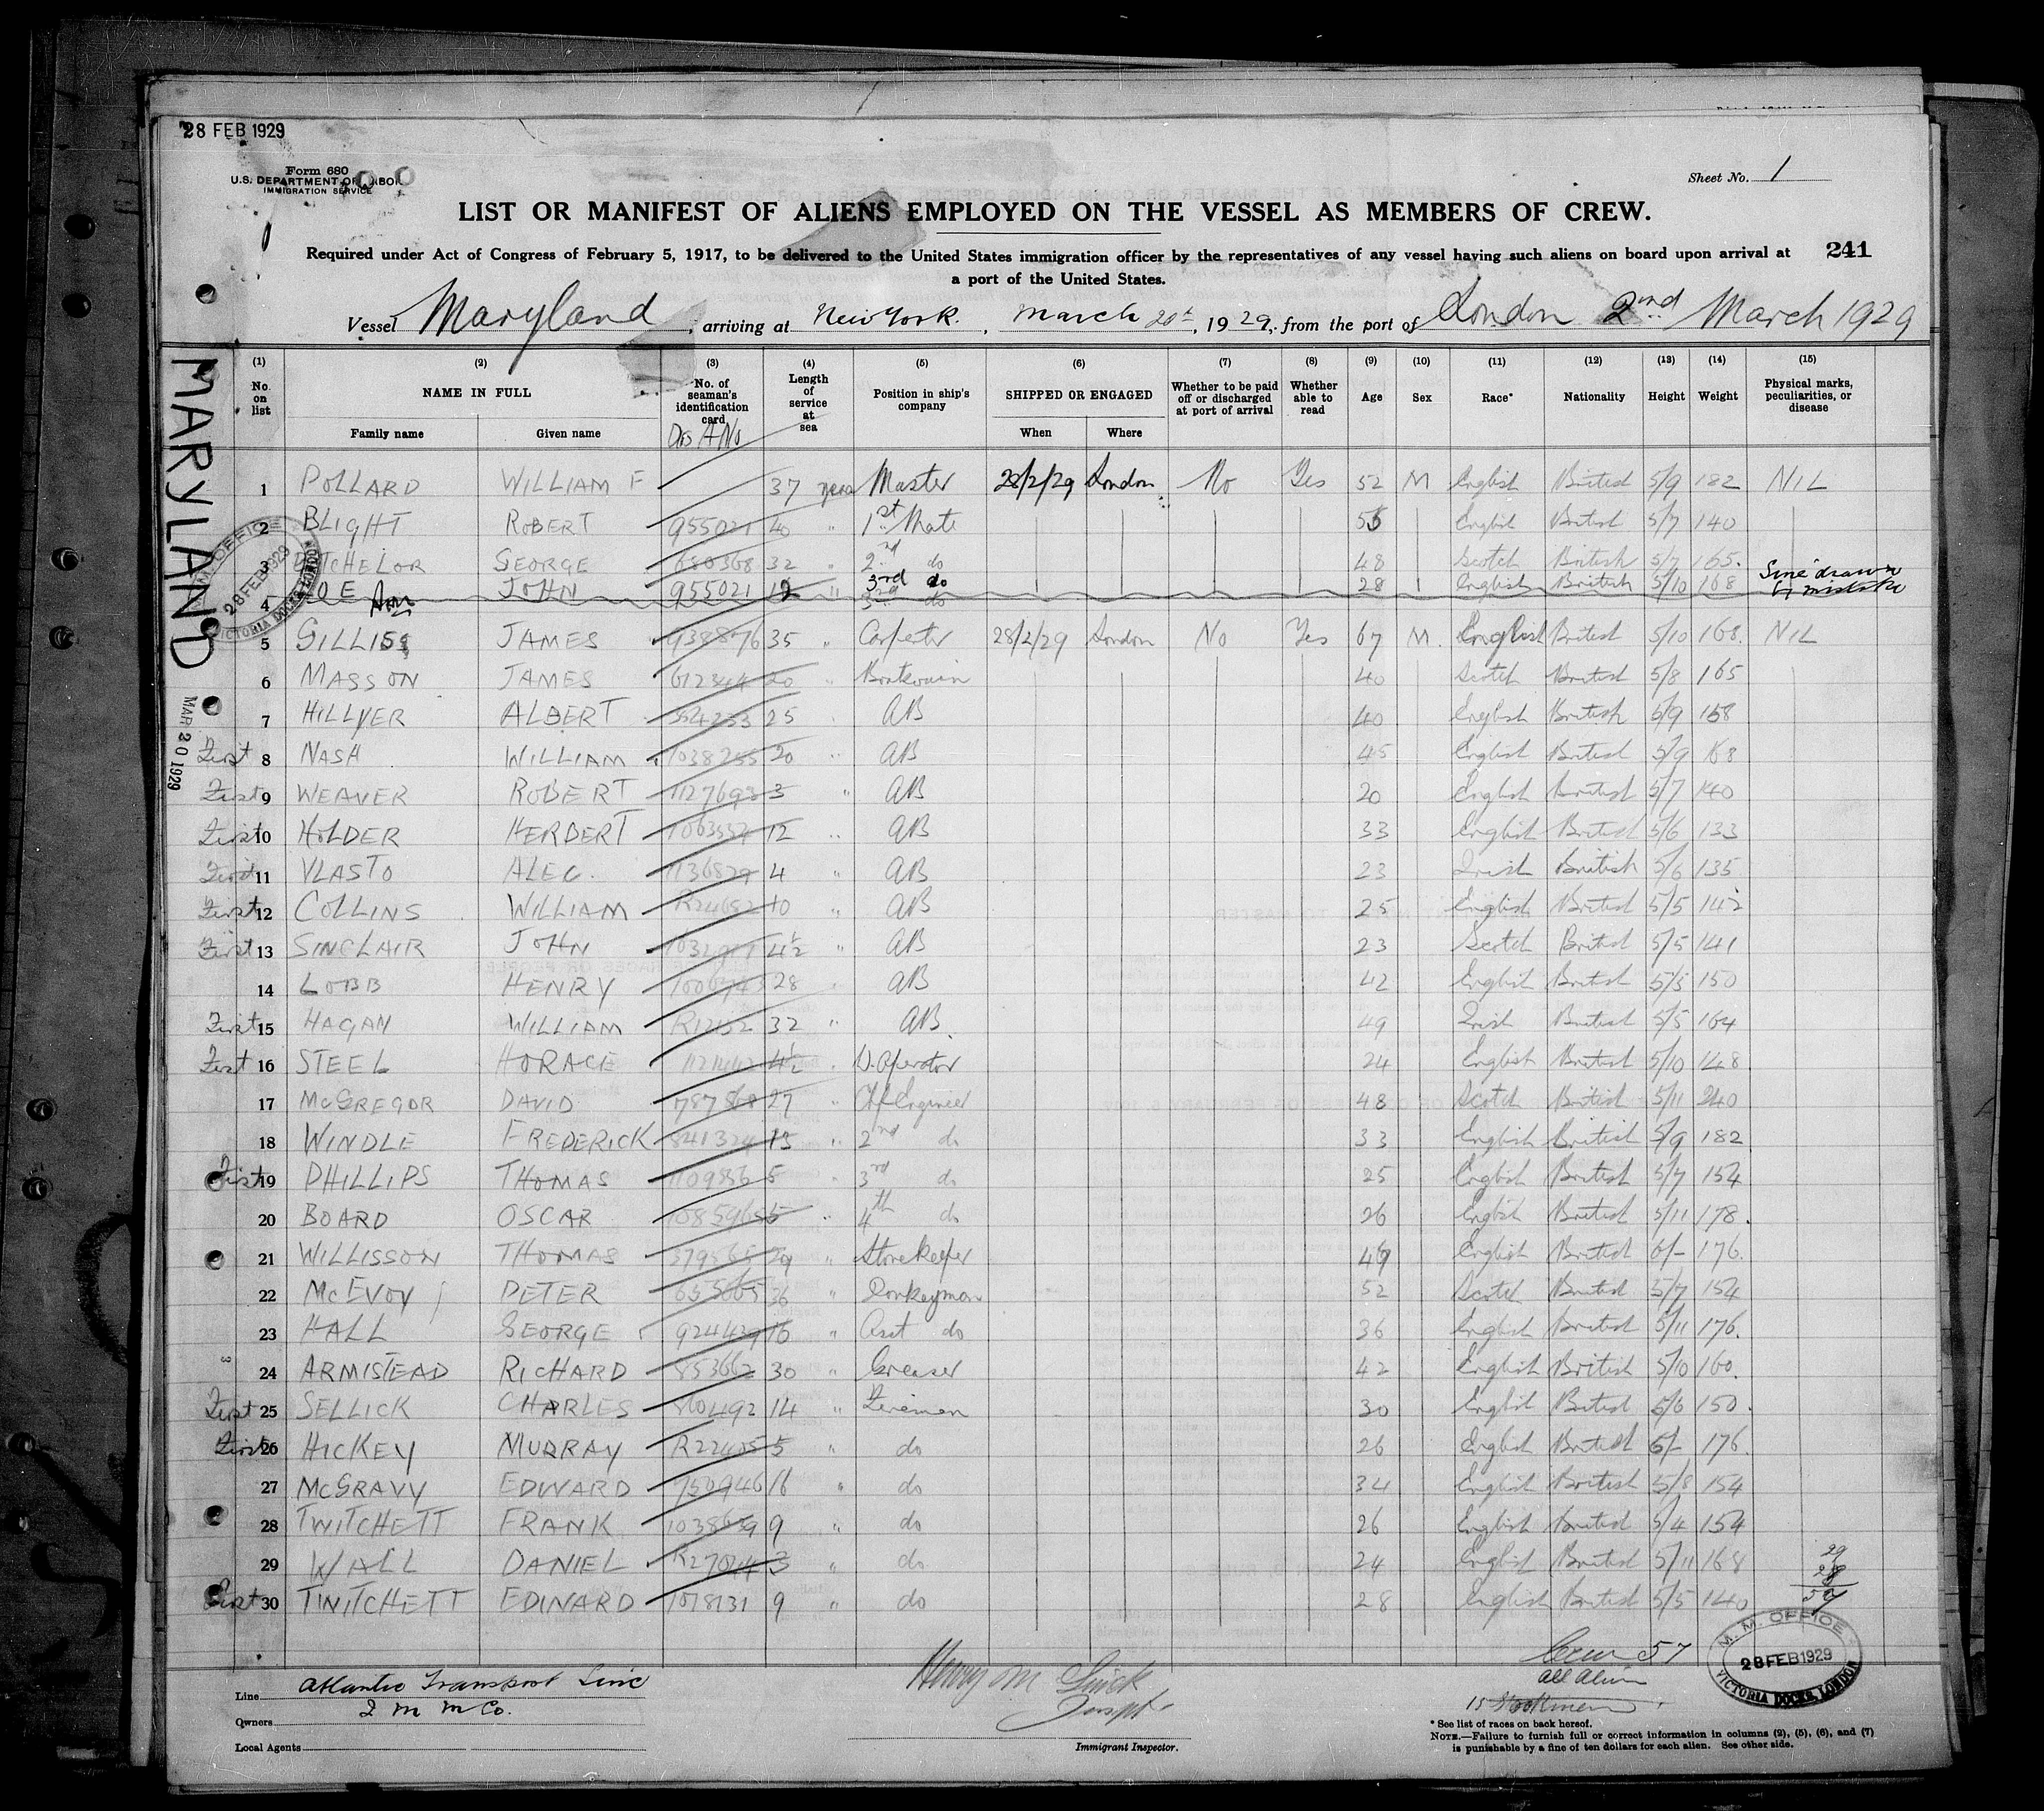 28 FEB 1929
Form 680
U.S. DEPARTMENT OF LABOR
IMMIGRATION SERVICE
Sheet No. 1
LIST OR MANIFEST OF ALIENS EMPLOYED ON THE VESSEL AS MEMBERS OF CREW.
Required under Act of Congress of February 5, 1917, to be delivered to the United States immigration officer by the representatives of any vessel having such aliens on board upon arrival at
a port of the United States.
241
Vessel Maryland, arriving at New York., March 20th, 1929, from the port of London 2nd March 1929
MARYLAND
MAR 20 1929
(1) (2) (3) (4) (5) (6) (7) (8) (9) (10) (11) (12) (13) (14) (15)
No. on list NAME IN FULL Family name Given name No. of seaman's identification card Dis A No Length of service at sea Position in ship's company SHIPPED OR ENGAGED When Where Whether to be paid off or discharged at port of arrival Whether able to read Age Sex Race* Nationality Height Weight Physical marks, peculiarities, or disease
1 POLLARD WILLIAM F 37 years Master 28/2/29 London No Yes 52 M English British 5/9 182 NIL
2 BLIGHT ROBERT 955021 40 " 1st Mate English British 5/7 140
3 BATCHELOR GEORGE 680368 32 " 2nd do 48 Scotch British 5/7 165.
4 JOHN 955021 12 " 3rd do 28 English British 5/10 168
5 GILLIS JAMES 938876 35 " Carpenter 28/2/29 London No Yes 67 M. English British 5/10 168. NIL
6 MASSON JAMES 612344 20 " Boatswain 40 Scotch British 5/8 165
7 HILLYER ALBERT 25 " AB 40 English British 5/9 158
First 8 NASH WILLIAM 1038255 20 " AB 45 English British 5/9 168
First 9 WEAVER ROBERT 3 " AB 20 English British 5/7 140
First 10 HOLDER HERBERT 12 " AB 33 English British 5/6 133
First 11 VLASTO ALEC. 4 " AB 23 Irish British 5/6 135
First 12 COLLINS WILLIAM R24652 10 " AB 25 English British 5/5 142
First 13 SINCLAIR JOHN 4½ " AB 23 Scotch British 5/5 141
14 LOBB HENRY 28 " AB 42 English British 5/3 150
First 15 HAGAN WILLIAM 32 " AB 49 Irish British 5/5 164
First 16 STEEL HORACE 4½ " W. Operator 24 English British 5/10 148
17 McGREGOR DAVID 787568 27 " Chf Engineer 48 Scotch British 5/11 240
18 WINDLE FREDERICK 841324 15 " 2nd do 33 English British 5/9 182
First 19 PHILLIPS THOMAS 5 " 3rd do 25 English British 5/7 154
20 BOARD OSCAR 5 " 4th do 26 English British 5/11 178.
21 WILLISSON THOMAS 29 " Storekeeper English British 6/- 176.
22 McEVOY PETER 36 " Donkeyman 52 Scotch British 5/7 154
23 HALL GEORGE 924429 16 " Asst do 36 English British 5/11 176.
24 ARMISTEAD RICHARD 853662 30 " Greaser 42 English British 5/10 160.
First 25 SELLICK CHARLES 14 " Fireman 30 English British 5/6 150.
First 26 HICKEY MURRAY R22405 5 " do 26 English British 6/- 176.
27 McGRAVY EDWARD 950946 16 " do 34 English British 5/8 154
28 TWITCHETT FRANK 1038639 9 " do 26 English British 5/4 154
29 WALL DANIEL 3 " do 24 English British 5/11 168
First 30 TWITCHETT EDWARD 1078131 9 " do 28 English British 5/5 140
Line Atlantic Transport Line
Owners I M M Co.
Local Agents
Immigrant Inspector.
Crew 57
All Alien
M. M. OFFICE
28 FEB 1929
VICTORIA DOCKS, LONDON
* See list of races on back hereof.
NOTE.—Failure to furnish full or correct information in columns (2), (5), (6), and (7)
is punishable by a fine of ten dollars for each alien. See other side.